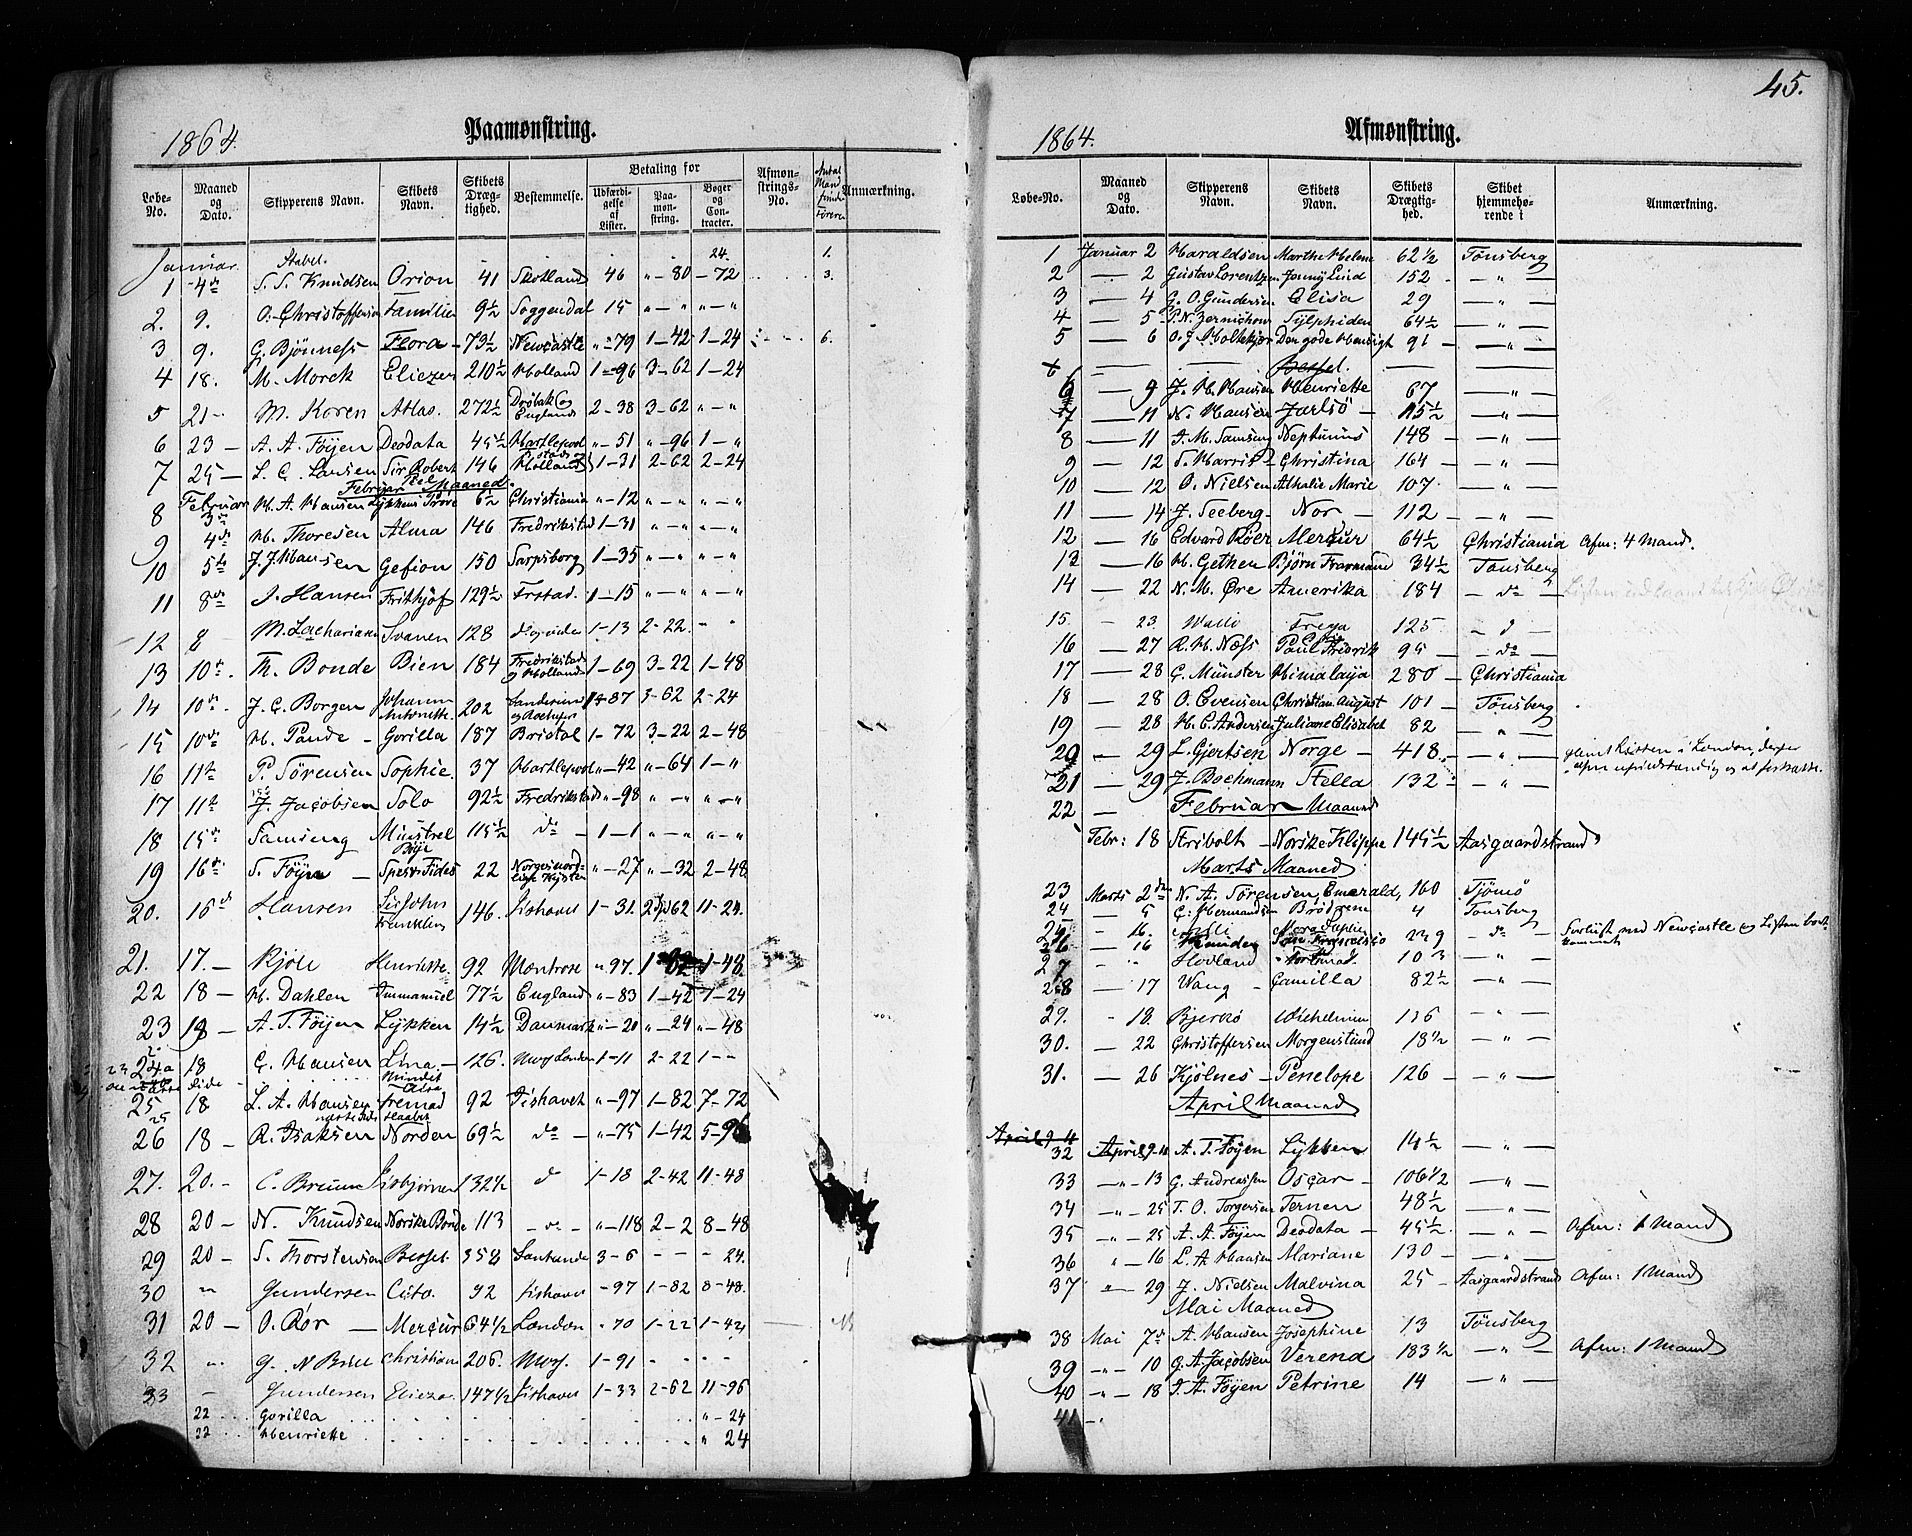 45.
1864. Paamønstring.
Løbe-No. Maaned og Dato. Skipperens Navn. Skibets Navn. Skibets Drægtighed. Bestemmelse. Betaling for Udfærdigelse af Lister. Paamønstring. Bøger og Contracter. Afmønstrings-No. Antal Mand Anmærkning.
Januar Stabel. 24. 1.
1 4de S. S. Knudsen Orion 41 Skotland 46 " - 80 - 72 3.
2. 9. O. Christoffersen Familien 9½ Soggendal 15 " - " " - "
3 9. G. Bjønness Flora 73½ Newcastle " - 79 1 - 42 1 - 24 6.
4 18. M. Morck Eliezer 210½ Holland 1 - 96 3 - 62 1 - 24
5 21 - M. Koren Atlas. 272½ Drøbak og England 2 - 38 3 - 62 " - "
6 23 - A. A. Føyen Deodata 45½ Hartlepool " - 51 " - 96 1 - "
7 25 - L. C. Larsen Sir Robert Peel 146 Holland 1 - 31 2 - 62 2 - 24
Februar Maaned.
8 Februar 3de H. A. Hansen Lykkens Prøve 6½ Christiania " - 12 " - " " - "
9 4de H. Thoresen Alma 146 Fredrikstad 1 - 31 " - " " - "
10 5te J. J. Hansen Gefion 150 Sarpsborg 1 - 35 " - " " - "
11 8de J. Hansen Frithjof 129½ Frstad. 1 - 15 " - " " - "
12 8 M. Zachariasen Svanen 128 do og videre 1 - 13 2 - 22. - "
13 10de. Th. Bonde Bien 184 Fredrikstad og Holland 1 - 69 3 - 22 1 - 48
14 10de. J. C. Borgen Johanne Antonette. 202 1 - 87 3 - 62 2 - 24
15 10de H. Pande - Gorilla 187 Bristol 1 - 72 3 - 22 2 - 48
16 11te P. Sørensen Sophie. 37 Hartlepool " - 42 " - 64 1 - "
17 11te J. Jacobsen Solo 92½ Fredrikstad " - 98 " - " " - "
18 15de Samsing Minstrel Boye 115½ do - 1 - 1 " - " " - "
19 16de S. Føyn - Spes & Fides 22 Norges nordlige Kyster " - 27 " - 32 2 - 48
20. 16d Hansen Sir John Franklin 146. Ishavet 1 - 31. 2 62 11 - 24.
21. 17. - Kjøll Henriette. 92 Montrose " 97. 1 82 1 - 48
22 18 - H. Dahlen Immanuel 77½ England " - 83 1 - 42 1 - 24
23 18 - A. T. Føyen Lykken 14½ Danmark " - 20 " - 24 " - 48
24 18 C. Hansen Lina - 126. London 1 - 11 2 - 22 1 - -
25 18 L. A. Hansen Fremad 92 Ishavet " - 97 1 - 82 7 - 72
26 18 - R. Isaksen Norden 69½ do - " - 75 1 - 42 5 - 96
27. 20. - C. Bruun Isbjørnen 132½ d 1 - 18 2 - 42 11 - 48
28 20 - N. Knudsen Norske Bonde 113 - do - " - 118 2 - 2 8 - 48
29 20 - S. Thorstensen Bessel. 358 3 - 6 - - - 24.
30 " Gundersen Cito. 92 Ishavet - 97 1 - 82 8 - 48.
31 20 - O. Rør - Mercur 64½ London " 70 1 - 22 1 - 42
32 " G. N. Bull Christiane 206. 1 - 91
33 - Gundersen Elieza. 147½ Ishavet 1 - 33 2 - 62 11 - 96
22 Gorilla " - 24
22 Henriette " 24
1864. Afmønstring.
Løbe-No. Maaned og Dato. Skipperens Navn. Skibets Navn. Skibets Drægtighed. Skibet hjemmehørende i Anmærkning.
1 Januar 2 Haraldsen Marthe Helene 62½ Tønsberg
2 - 2 Gustav Lorentzen Jenny Lind 152 - " -
3 - 4 G. O. Gundersen Elisa 29 - " -
4 - 5 P. N. Zernichow Sylphiden 64½ - " -
5 - 6 O. J. Holtekjær Den gode Hensigt 91 - " -
Bessel.
6 - 9 J. H. Hansen Henriette 67 - " -
7 - 11 N. Hansen Jarlsö - 115½ - " -
8 - 11 J. M. Samsing Neptunus 148 - " -
9 - 12 S. Harris - Christina 164 - " -
10 - 12 O. Nielsen Athalie Marie 107 - " -
11 - 14 J. Seeberg - Nor - 112 - " -
12 - 16 Edvard Röer Mercur 64½ Christiania Afm: 4 Mand.
13 - 16 H. Gethen Bjørn Farmand 34½ Tønsberg
14 - 22 N. M. Øre Amerika 184 - do -
15. - 23. Wallø Freya 125 - d -
16 - 27 R. H. Næss Paul Fredrik 95 - do -
17 - 28 C. Münster Himalaya 280 - Christiania
18 - 28 O. Evensen Christian August 101 - Tønsberg
19 - 28 H. C. Andersen Juliane Elisabet 82 - " -
20 - 29 L. Gjertsen Norge - 418 - - " - glemt Listen i London, derfor
21 - 29 J. Bochmann Stella 132 - - " -
22 - Februar Maaned
Febr: 18 Stribolt - Norske Klippe 145½ Aasgaardstrand
Marts Maaned
23 Marts 2de N. A. Sørensen, Emerald, 160 Tjømø
24 - 5 C. Hermandsen Brødrene 4 Tønsberg
25 " 16. - do - Forliist ved Newcastle og Listen bortkommet
26 - 16 239 - " -
27 Hovland Fortuna. 103 - " -
28 - 17 Wang - Camilla 82½ - " -
29. " 18. Bjerkø Wilhelmine 136 - " -
30. - 22 Christoffersen Morgenstund 18½ - " -
31. - 26 Kjølnes - Penelope 126 - - " -
April Maaned
32 April 9-11 A. T. Føyen Lykken 14½ - " -
33 - " - 13 G. Andreassen Oscar - 106½ - " -
34 - " - 25 T. O. Torgersen Ternen 48½ - " -
35 " - 25 A. A. Føyen Deodata - 45½ - " - Afm: 1 Mand
36 " - 16 L. A. Hansen Mariane 130 - - " -
37 " - 29 J. Nielsen Malvina 25 - Aasgaardstrand Afm: 1 Mand
Mai Maaned
38 Mai 7de A. Hansen Josephine 73 Tønsberg
39 - " - 10 G. A. Jacobsen Verena 183½ - " - Afm: 1 Mand
40 " - 18 J. A. Føyen Petrine 14 - " -
41 - "